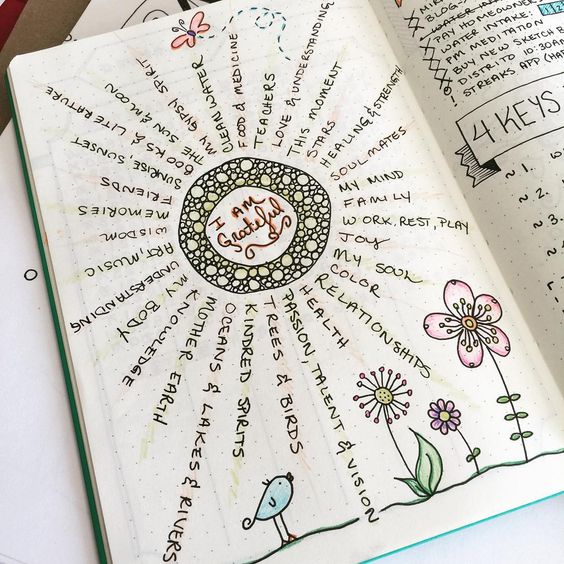 I AM
Grateful
CLEAN WATER
FOOD & MEDICINE
TEACHERS
LOVE & UNDERSTANDING
THIS MOMENT
STARS
HEALING & STRENGTH
SOULMATES
MY MIND
FAMILY
WORK, REST, PLAY
JOY
MY SOUL
COLOR
RELATIONSHIPS
HEALTH
PASSION, TALENT & VISION
TREES & BIRDS
KINDRED SPIRITS
OCEANS & LAKES & RIVERS
MOTHER EARTH
KNOWLEDGE
MY BODY
UNDERSTANDING
ART, MUSIC
WISDOM
MEMORIES
FRIENDS
SUNRISE, SUNSET
THE SUN & MOON
BOOKS & LITERATURE
MY GYPSY SPIRIT
BLOG
PAY HOMEOWNE
WATER INTAKE:
PM MEDITATION
BUY NEW SKETCH B
DISTRITO 10:30A
! STREAKS APP (HA
4 KEYS
~ 1. W
~ 2.
~ 3.
~ 4.